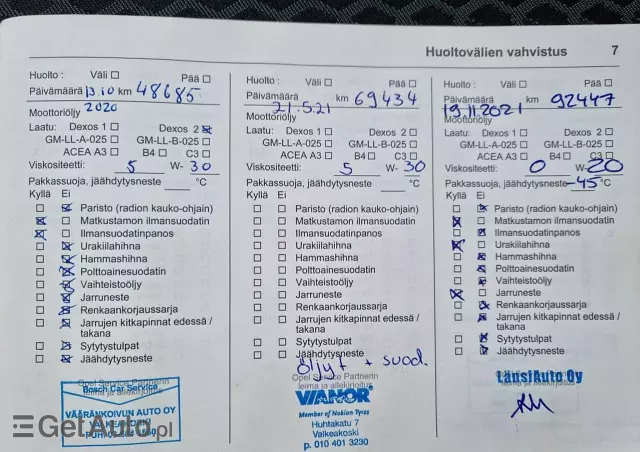 Huoltovälien vahvistus 7
Huolto : Väli Pää
Päivämäärä 13.10 km 48685
2020
Moottoriöljy
Laatu: Dexos 1 Dexos 2
GM-LL-A-025 GM-LL-B-025
ACEA A3 B4 C3
Viskositeetti: 5 W- 30
Pakkassuoja, jäähdytysneste °C
Kyllä Ei
Paristo (radion kauko-ohjain)
Matkustamon ilmansuodatin
Ilmansuodatinpanos
Urakiilahihna
Hammashihna
Polttoainesuodatin
Vaihteistoöljy
Jarruneste
Renkaankorjaussarja
Jarrujen kitkapinnat edessä /
takana
Sytytystulpat
Jäähdytysneste
Opel Service Partnerin
leima ja allekirjoitus
Bosch Car Service
VÄÄRÄNKOIVUN AUTO OY
VALKEAKOSKI
Huolto : Väli Pää
Päivämäärä 21.5.21 km 69434
Moottoriöljy
Laatu: Dexos 1 Dexos 2
GM-LL-A-025 GM-LL-B-025
ACEA A3 B4 C3
Viskositeetti: 5 W- 30
Pakkassuoja, jäähdytysneste °C
Kyllä Ei
Paristo (radion kauko-ohjain)
Matkustamon ilmansuodatin
Ilmansuodatinpanos
Urakiilahihna
Hammashihna
Polttoainesuodatin
Vaihteistoöljy
Jarruneste
Renkaankorjaussarja
Jarrujen kitkapinnat edessä /
takana
Sytytystulpat
Jäähdytysneste
öljyt + suod.
Opel Service Partnerin
leima ja allekirjoitus
VIANOR
Member of Nokian Tyres
Huhtakatu 7
Valkeakoski
p. 010 401 3230
Huolto : Väli Pää
Päivämäärä km 92447
19.11.2021
Moottoriöljy
Laatu: Dexos 1 Dexos 2
GM-LL-A-025 GM-LL-B-025
ACEA A3 B4 C3
Viskositeetti: 0 W- 20
Pakkassuoja, jäähdytysneste -45 °C
Kyllä Ei
Paristo (radion kauko-ohjain)
Matkustamon ilmansuodatin
Ilmansuodatinpanos
Urakiilahihna
Hammashihna
Polttoainesuodatin
Vaihteistoöljy
Jarruneste
Renkaankorjaussarja
Jarrujen kitkapinnat edessä /
takana
Sytytystulpat
Jäähdytysneste
LänsiAuto Oy
GetAuto.pl